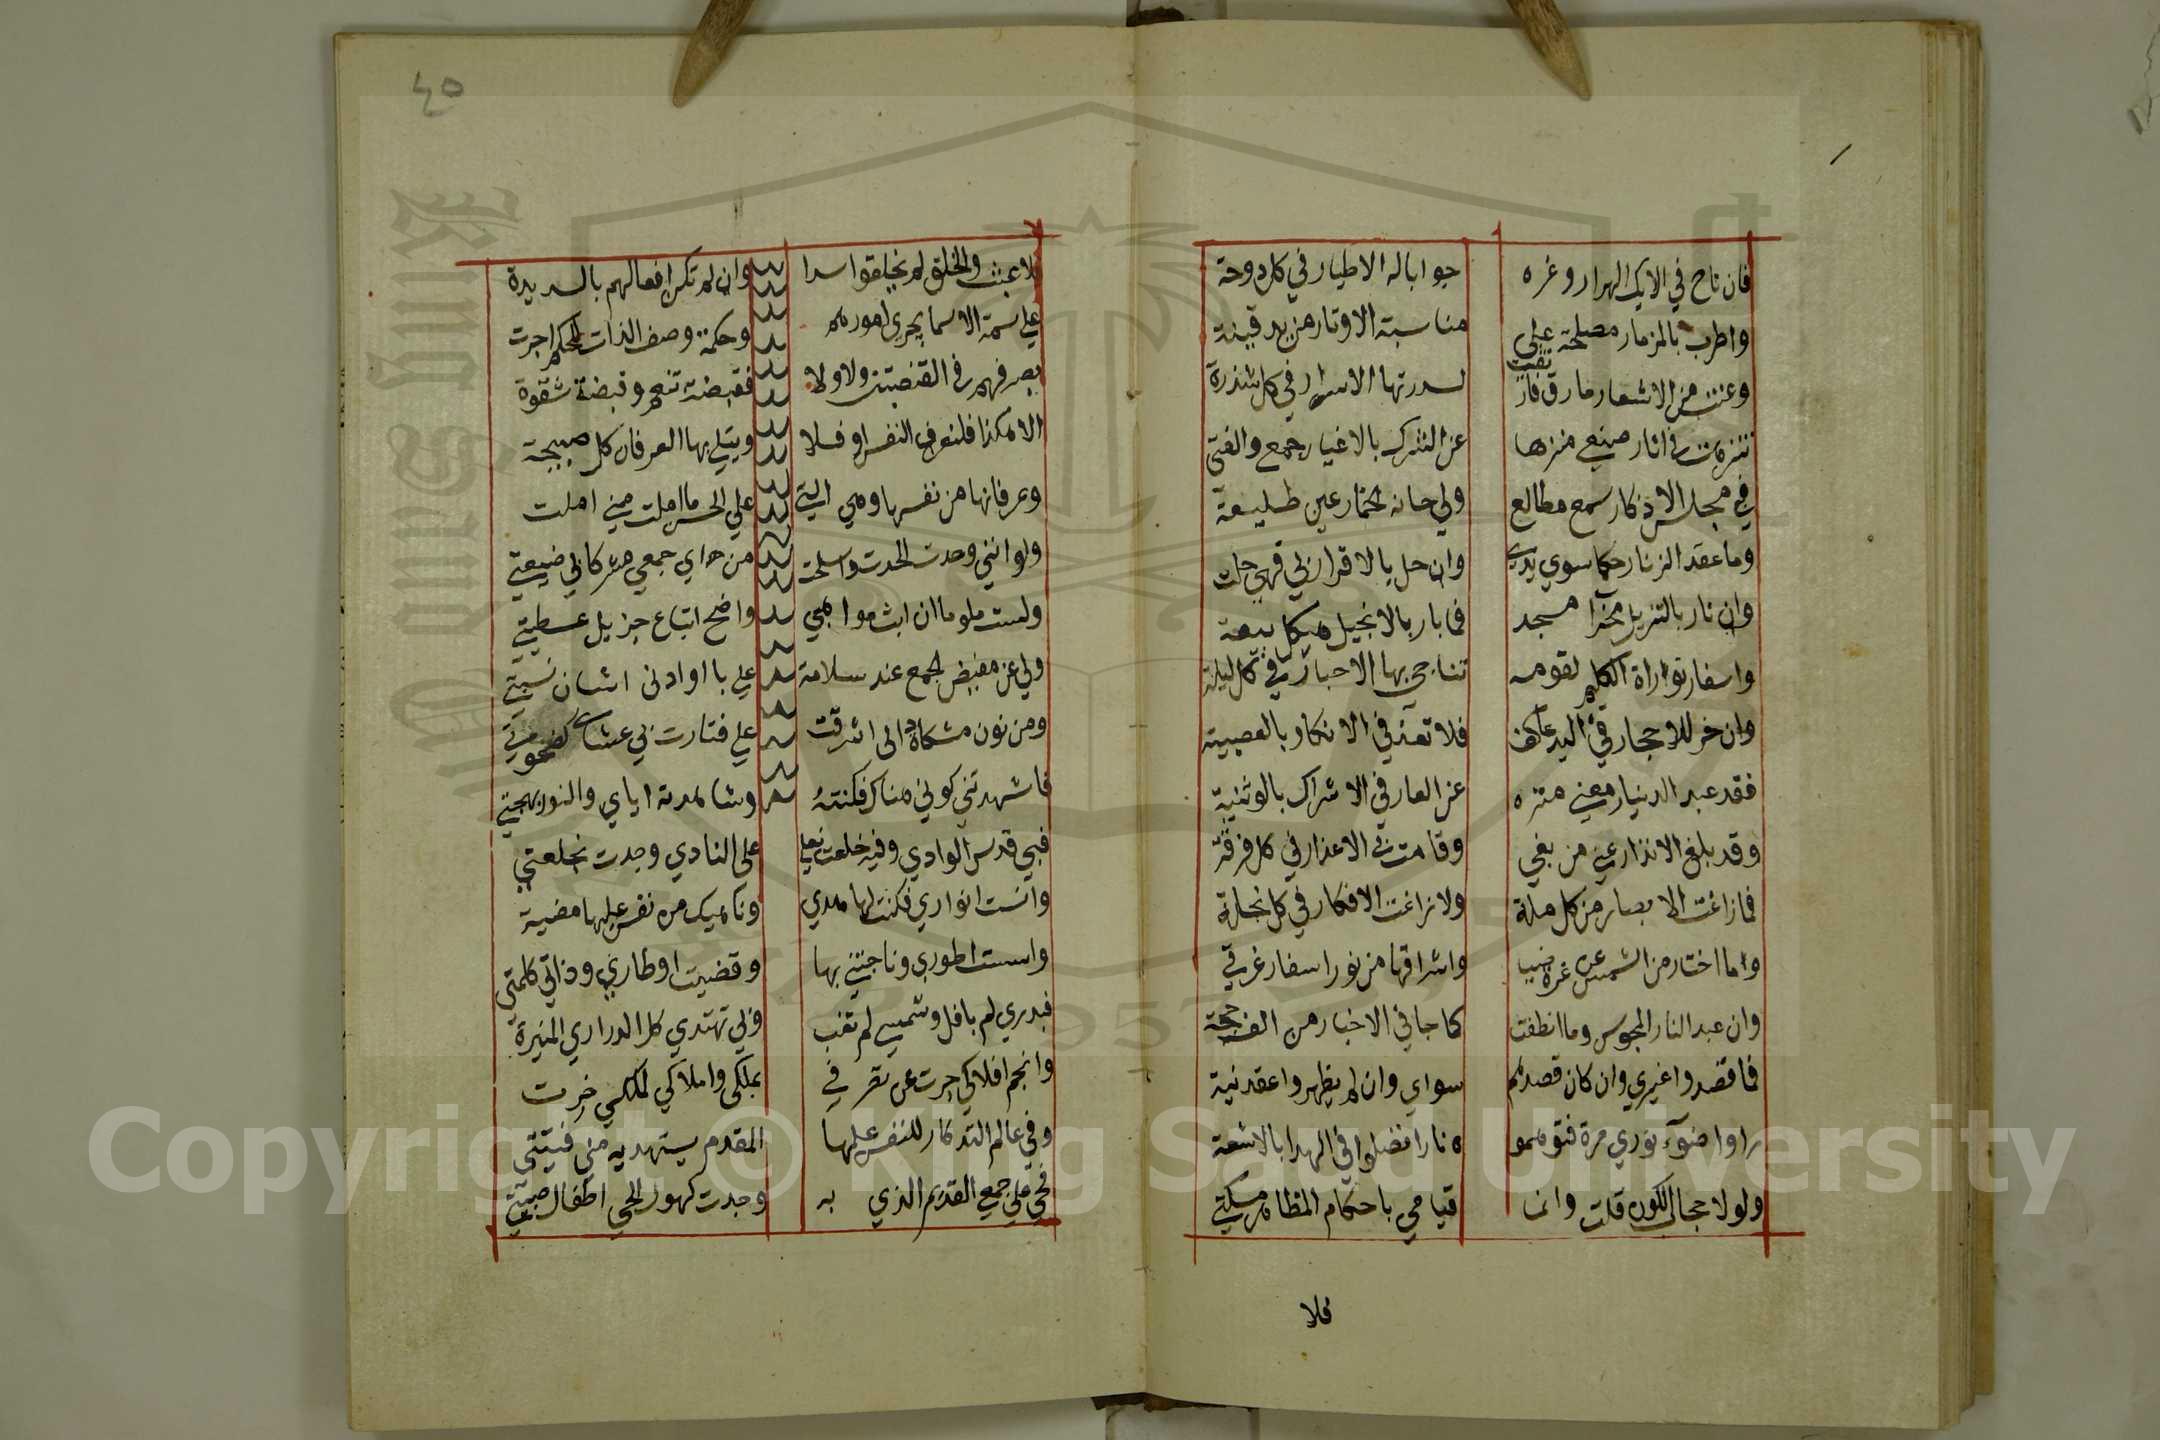 فان ناح في الايك الهزار وغره جوابا له الاطيار في كل دوحة
واطرب بالمزمار مصلحة علي مناسبة الاوتار من يد قينة
وغنت من الاشعار مارق فارتقت لسدرتها الاسرار في كل شذرة
تنزهت في اثار صنعي منزها عن الشرك بالاغيار جمعي والفتي
في مجلس الاذكار سمع مطالع ولي حانة الخمار عين طليعة
وما عقد الزنار حكما سوي يدي وان حل بالاقرار بي فهي حلت
وان نار بالتنزيل محرا مسجد فما بار بالانجيل هيكل بيعة
واسفار توراة الكليم لقومه تناجي بها الاحبار في كل ليلة
وان خر للاحجار في البد عاكف فلا تعد في الانكار بالعصبية
فقد عبد الدينار معني منزه عن العار في الاشراك بالوثنية
وقد بلغ الانذار عني من بغي وقامت بي الاعذار في كل فرقة
فما زاغت الابصار من كل ملة ولا زاغت الافكار في كل نحلة
وما اختار من الشمس عن غرة صب واشراقها من نور اسفار غرتي
وان عبد النار المجوس وما انطفت كما جا في الاخبار من الف حجة
فما قصدوا غيري وان كان قصدهم سواي وان لم يظهروا عقد نية
راوا ضوء نوري مرة فتوهمو ه نارا فضلوا في الهدا بالاشعة
ولولا حجاب الكون قلت وانما قيامي باحكام المظاهر مسكتي
فلا
٤٥
فلا عبث والخلق لم يخلقوا سدا وان لم تكن افعالهم بالسديدة
علي سمة الاسما يجري امورهم وحكمة وصف الذات للحكم اجرت
يصرفهم في القبضتين ولا ولا فقبضة تنعم وقبضة شقوة
الا هكذا فلتعرف النفس او فلا ويتلي بها الفرقان كل صبيحة
وعرفانها من نفسها وهي التي علي الحس ما املت مني املت
ولو انني وحدت الحدت وانسلخت من اي جمعي مشركا بي صنعتي
ولست ملوما ان ابث مواهبي وامنح اتباعي جزيل عطيتي
ولي عن مفيض الجمع عند سلامه علي باو ادني اشارة نسبتي
ومن نوره مشكاة ذاتي اشرقت علي فنارت بي عشاي كضحوتي
فاشهدتني كوني هناك فكنته وشاهدته اياي والنور بهجتي
فبي قدس الوادي وفيه خلعت نعلي علي النادي وجدت بخلعتي
وانست انواري فكنت لها هدي وناهيك من نفس عليها مضية
واسست اطوري وناجيتني بها وقضيت اوطاري وذاتي كليمتي
فبدري لم يافل وشمسي لم تغب وبي تهتدي كل الدراري المنيرة
وانجم افلاكي جرت عن تصر في بملكي واملاكي لملكي خرت
وفي عالم التذكار للنفس علمها المقدم يستهديه مني فتيتي
فحي علي جمعي القديم الذي به وجدت كهول الحي اطفال صبية